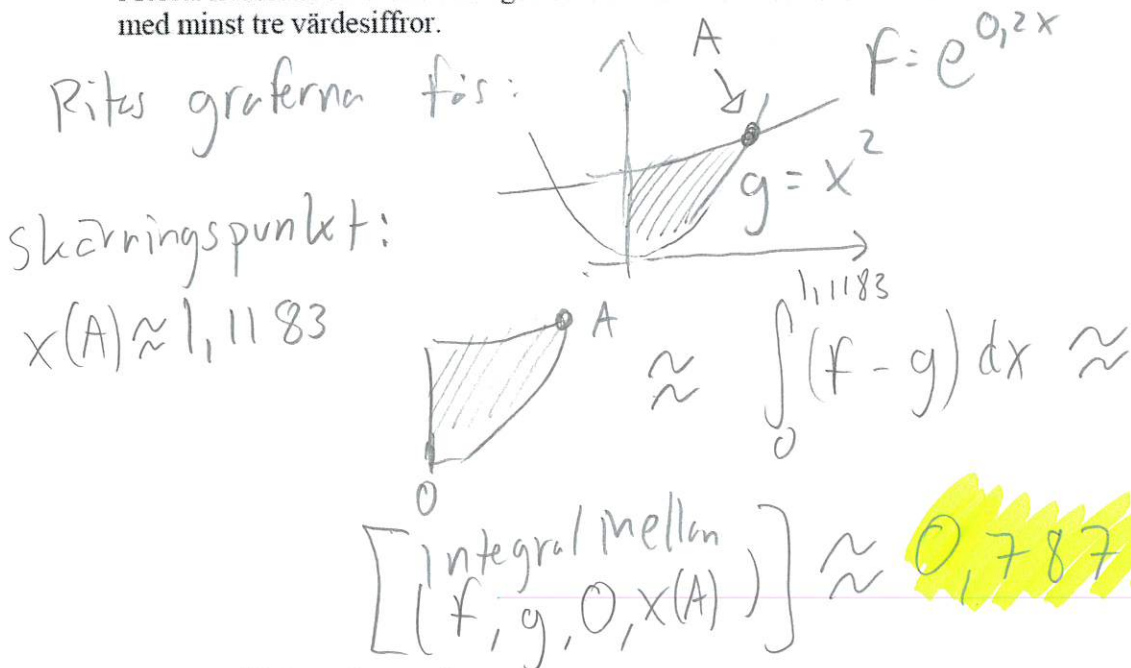 med minst tre värdesiffror.
Ritas graferna fås:
A
f = e^{0,2x}
g = x^2
Skärningspunkt:
x(A) ≈ 1,1183
A
0
≈ ∫_0^{1,1183} (f - g) dx ≈
[integral mellan
(f, g, 0, x(A))] ≈ 0,787